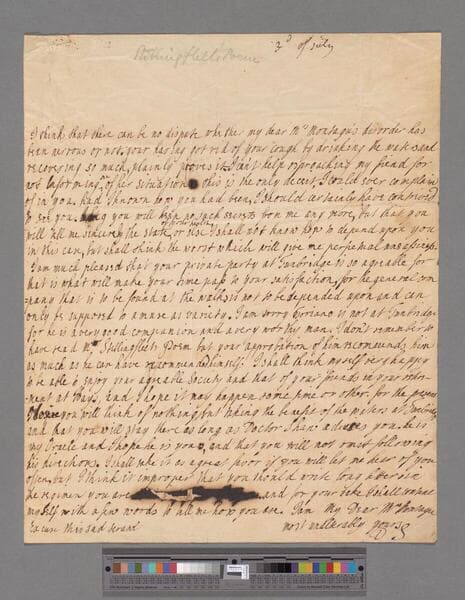 3d of July
Stillingfleets Poem
I think that there can be no dispute whether my dear Mrs Montagu's disorder has
been nervous or not, your having got rid of your cough by drinking the waters and
recovering so much, plainly proves it. I can't help reproaching my friend for
not informing of her situation this is the only deceit, I could ever complain
of in you, had I known how you had been, I should certainly have contrived
to see you, you will keep no such secrets from me any more, but that you
will tell me sincerely the state, or else I shall not know how to depend upon you
in this case, but shall think the worst which will give me perpetual uneasiness.
I am much pleased that your private party at Tunbridge is so agreable for
that is what will make your time pass to your satisfaction, for the general com
pany that is to be found at the waters is not to be depended upon and can
only be supposed to amuse as variety. I am sorry is not at Tunbridge
for he is a very good companion and a very worthy man. I don't remember to
have read Mr Stillingfleets Poem but your approbation of him recommends him
as much as he can have recommended himself. I shall think myself very happy
to be able to enjoy your agreable Society and that of your friends in your
at Hays, and I hope it may happen some time or other. for the present
I hope you will think of nothing but taking the benefit of the waters at Tunbridge
and that you will stay there as long as Doctor Shaw advises you. he is
my Oracle and I hope he is yours, and that you will not omit following
his directions. I shall take it as a great favor if you will let me hear of you
often, but I think it improper that you should write long letters in
the regimen you are and for your sake I shall
myself with a few words to tell me how you are. I am My Dear Mrs Montagu
Excuse this sad scrawl most unalterably yours